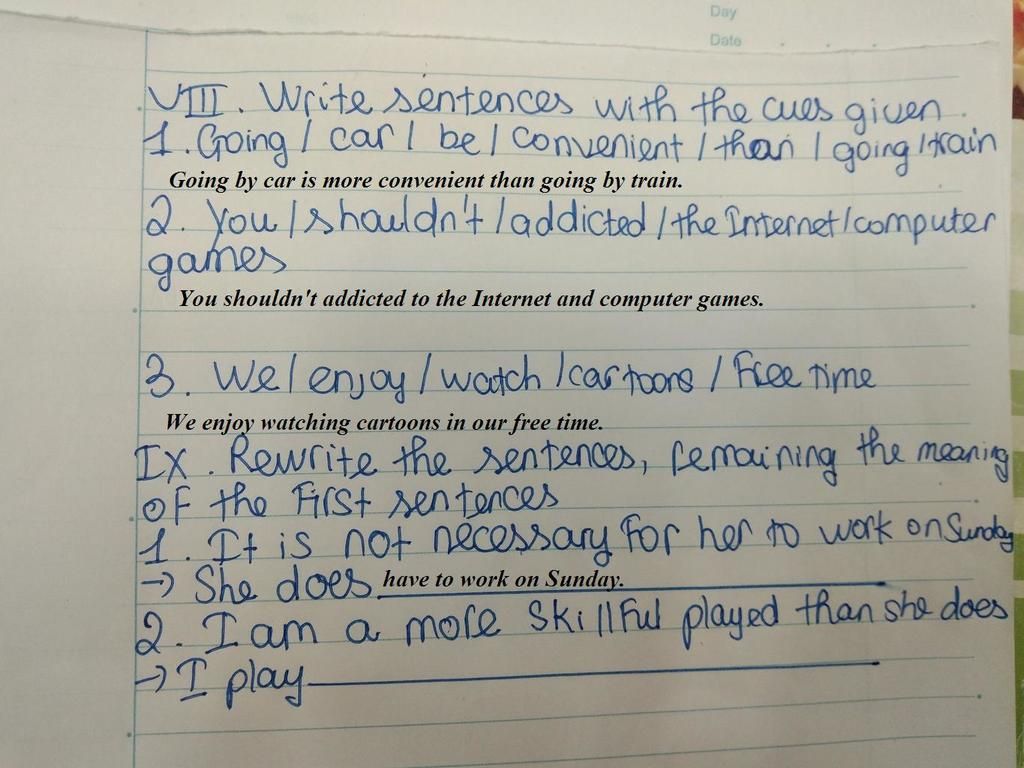 Day
Date
VIII. Write sentences with the cues given.
1. Going / car / be / convenient / than / going / train
Going by car is more convenient than going by train.
2. You / shouldn't / addicted / the Internet / computer
games
You shouldn't addicted to the Internet and computer games.
3. We / enjoy / watch / cartoons / Free time
We enjoy watching cartoons in our free time.
IX. Rewrite the sentences, remaining the meaning
of the first sentences
1. It is not necessary for her to work on Sunday
→ She does have to work on Sunday.
2. I am a more skillful played than she does
→ I play